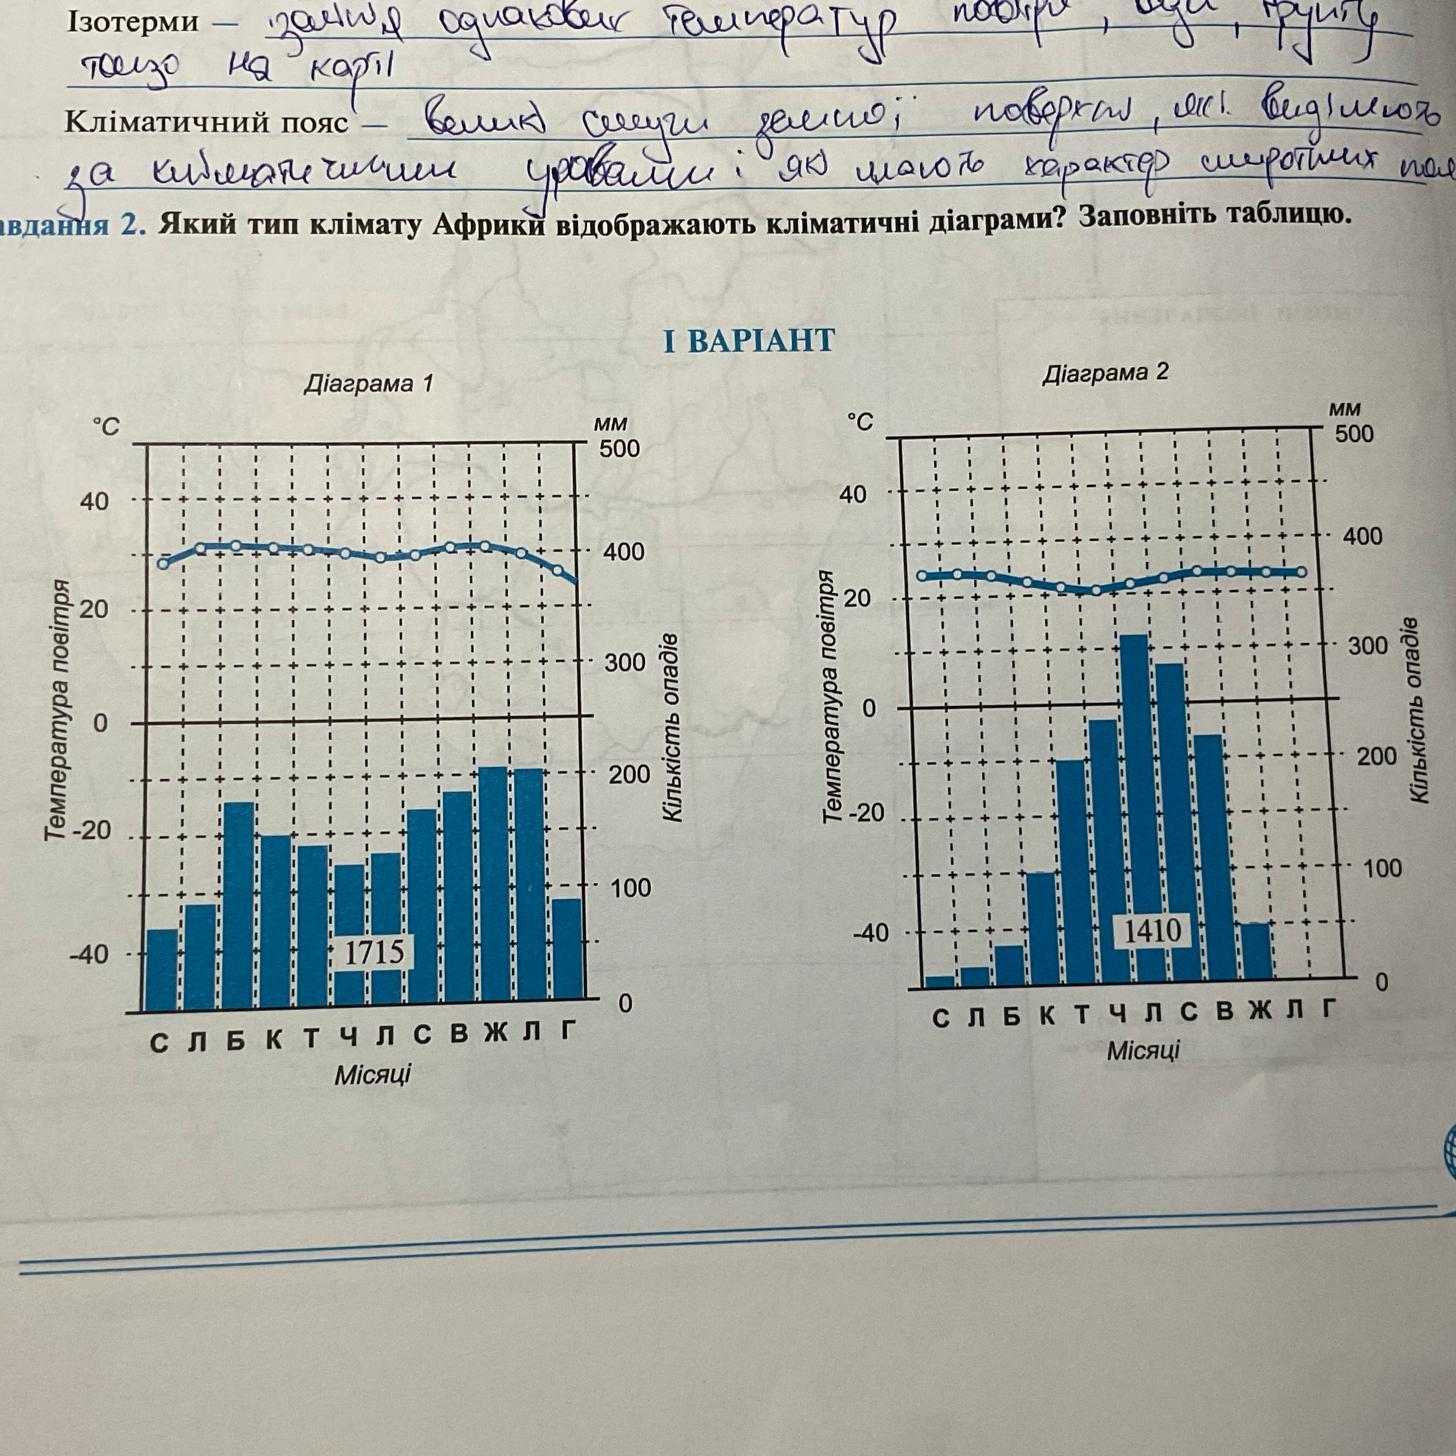 Ізотерми — лінія однакових температур повітря, води, ґрунту
тощо на карті
Кліматичний пояс — великі смуги земної поверхні, які виділяють
за кліматичними і які мають характер широтних
авдання 2. Який тип клімату Африки відображають кліматичні діаграми? Заповніть таблицю.
І ВАРІАНТ
Діаграма 1
°C
мм
500
40
400
20
300
0
200
-20
100
-40
0
Температура повітря
Кількість опадів
1715
С Л Б К Т Ч Л С В Ж Л Г
Місяці
Діаграма 2
°C
мм
500
40
400
20
300
0
200
-20
100
-40
0
Температура повітря
Кількість опадів
1410
С Л Б К Т Ч Л С В Ж Л Г
Місяці